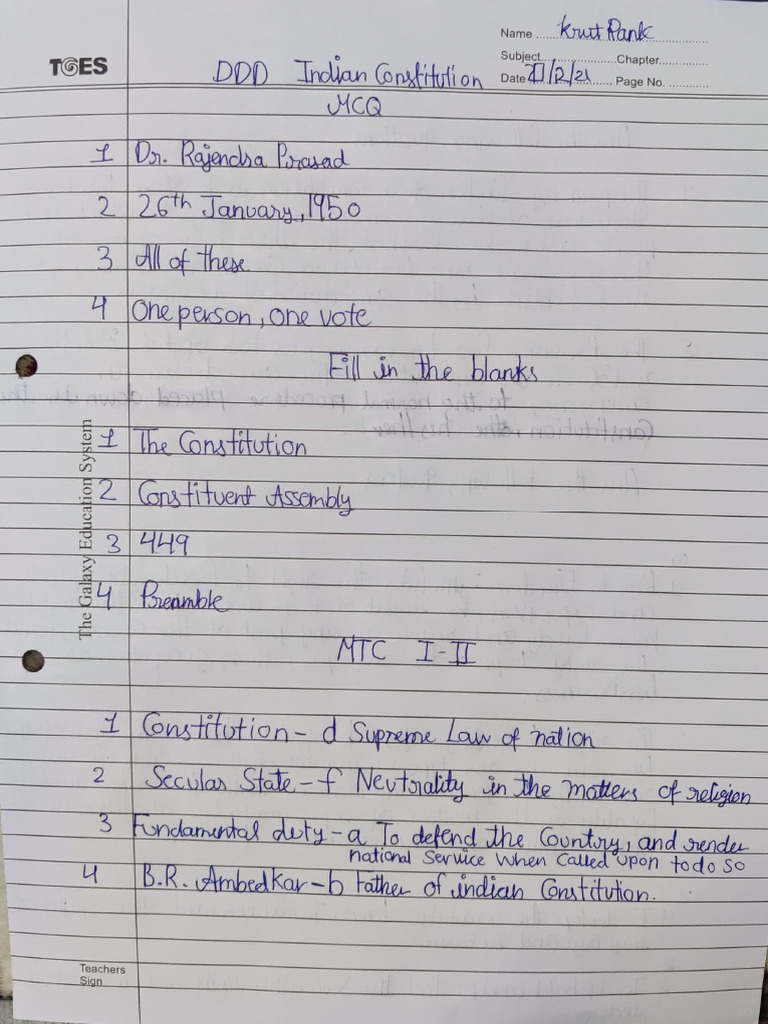 Name Krut Pank
Subject Chapter
TGES
DDD Indian Constitution
Date 21/2/21 Page No.
MCQ
1 Dr. Rajendra Prasad
2 26th January, 1950
3 All of these
4 One person, One vote
Fill in the blanks
The Galaxy Education System
1 The Constitution
2 Constituent Assembly
3 449
4 Preamble
MTC I-II
1 Constitution - d Supreme Law of nation
2 Secular State - f Neutrality in the matters of religion
3 Fundamental duty - a To defend the Country, and render
national Service when called upon to do so
4 B.R. Ambedkar - b Father of indian Constitution.
Teachers
Sign